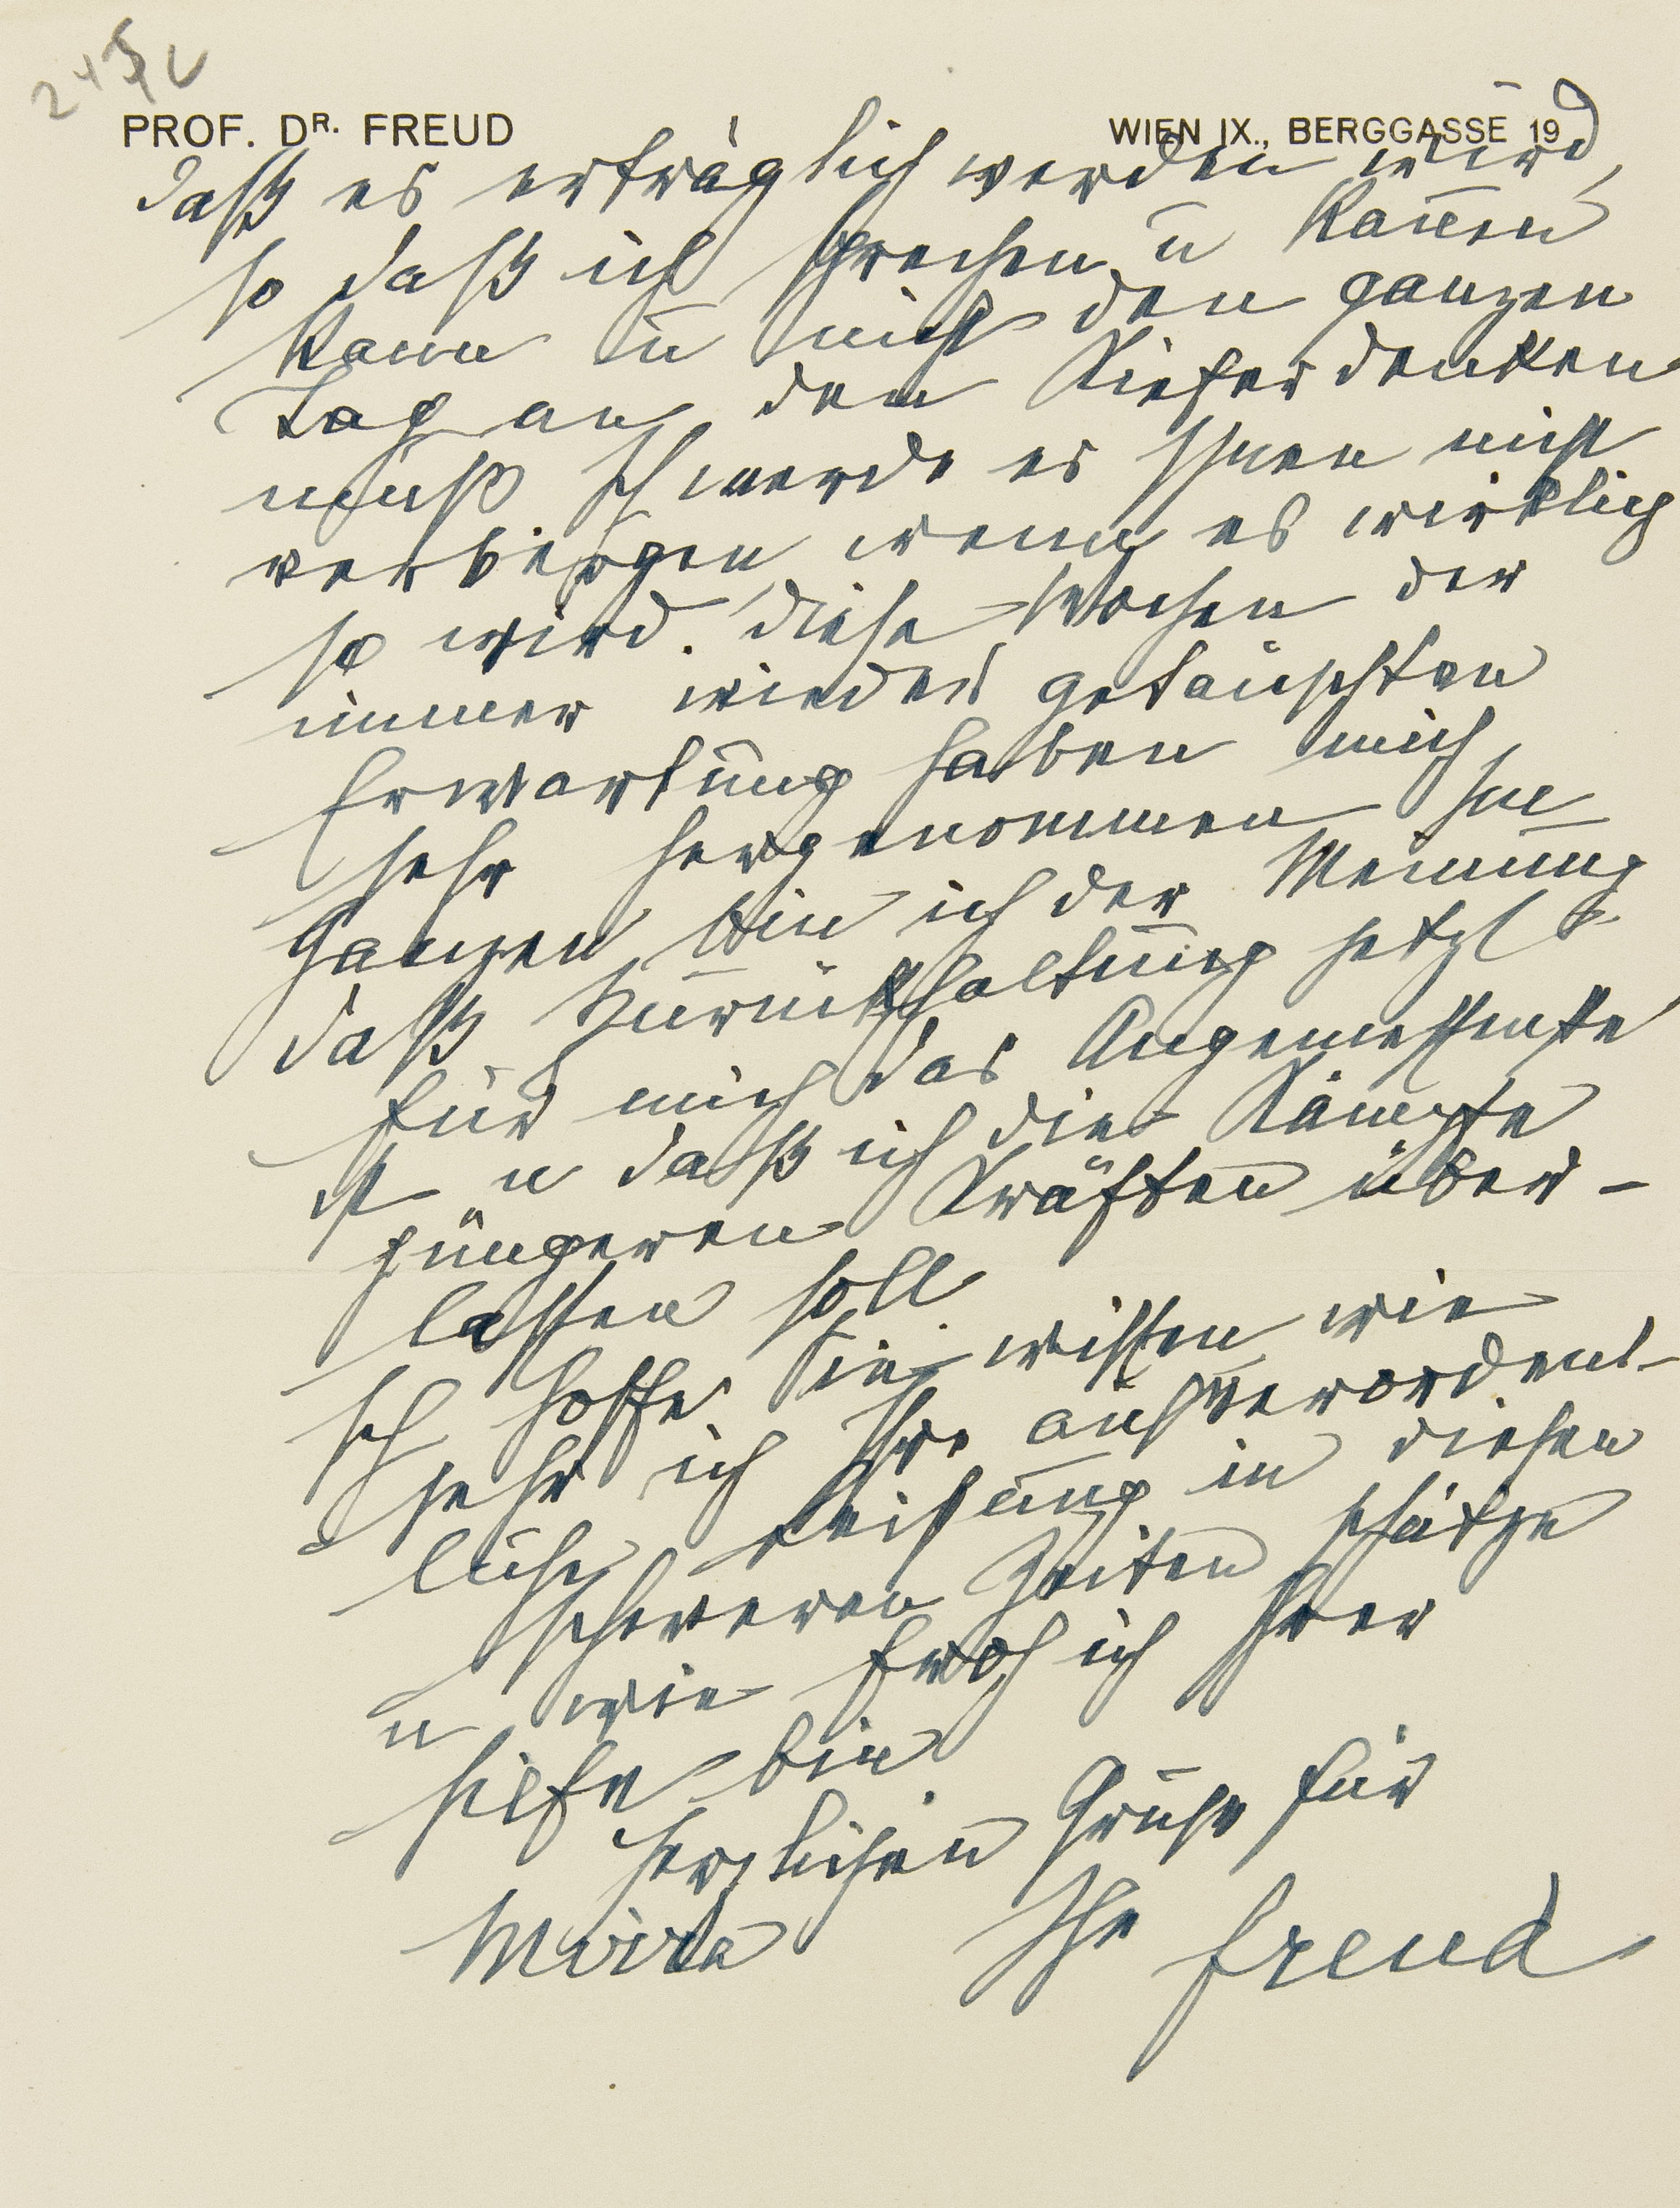 PROF. DR. FREUD WIEN IX., BERGGASSE 19
daß es erträglich werden wird,
so daß ich sprechen u kauen
kann u nicht den ganzen
Tag an den Kiefer denken
muß Ich werde es Ihnen nicht
verbergen wenn es wirklich
so wird. Diese Wochen der
immer wieder getäuschten
Erwartung haben mich
sehr hergenommen Im
Ganzen bin ich der Meinung
daß Zurückhaltung jetzt
für mich das Angemessenste
ist u daß ich die Kämpfe
jüngeren Kräften über-
lassen soll
Ich hoffe Sie wissen wie
sehr ich Ihre außerordent-
liche Leistung in diesen
schweren Zeiten schätze
u wie froh ich Ihrer
Hilfe bin.
Herzlichen Gruß für
Mirra Ihr Freud